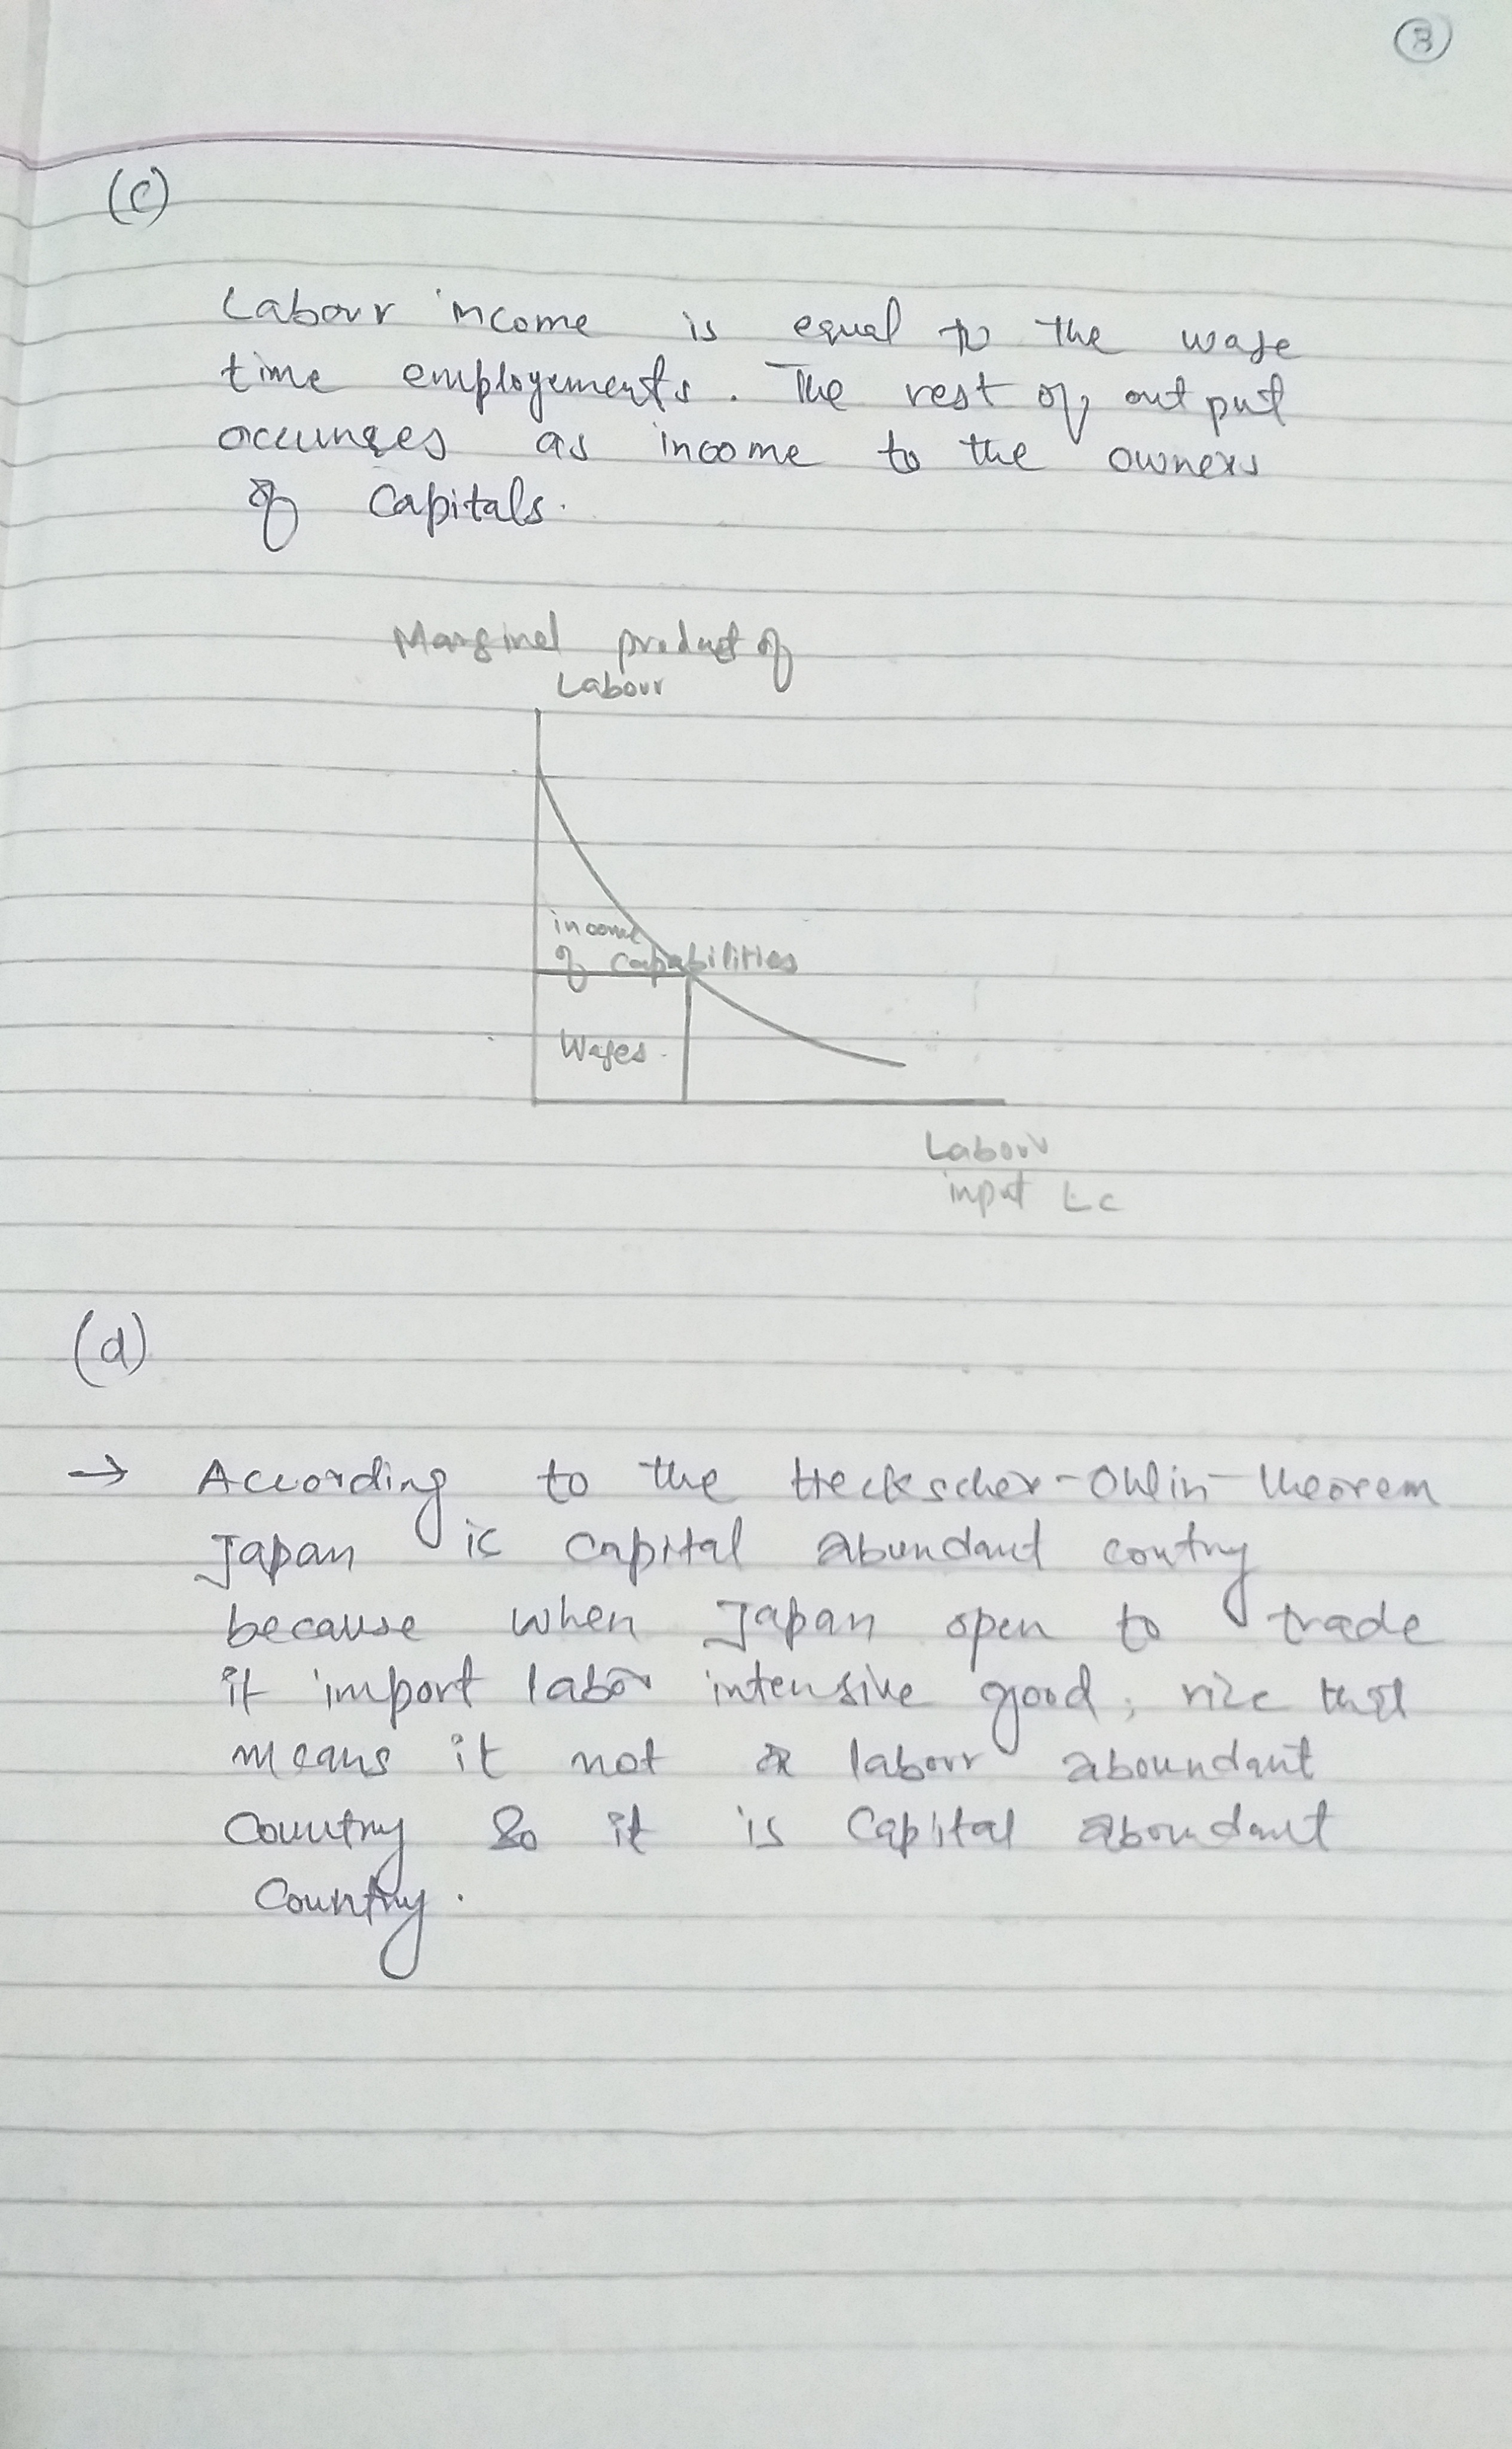 3
(c)
Labour income is equal to the wage
time employements. The rest of out put
as income to the owners
of Capitals.
Marginel product of
Labour
income
of capabilities
Wages.
Labour
input Lc
(d)
→ According to the Heckscher-Ohlin-theorem
Japan is capital abundant contry
because when Japan open to trade
it import labor intensive good, rice that
means it not a labour aboundant
Country So it is Capital aboundant
Country.